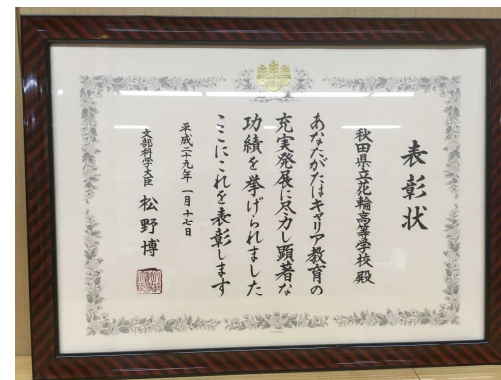 表彰状
秋田県立花輪高等学校殿
あなたがたはキャリア教育の
充実発展に尽力し顕著な
功績を挙げられました
ここにこれを表彰します
平成二十九年一月十七日
文部科学大臣 松野博一